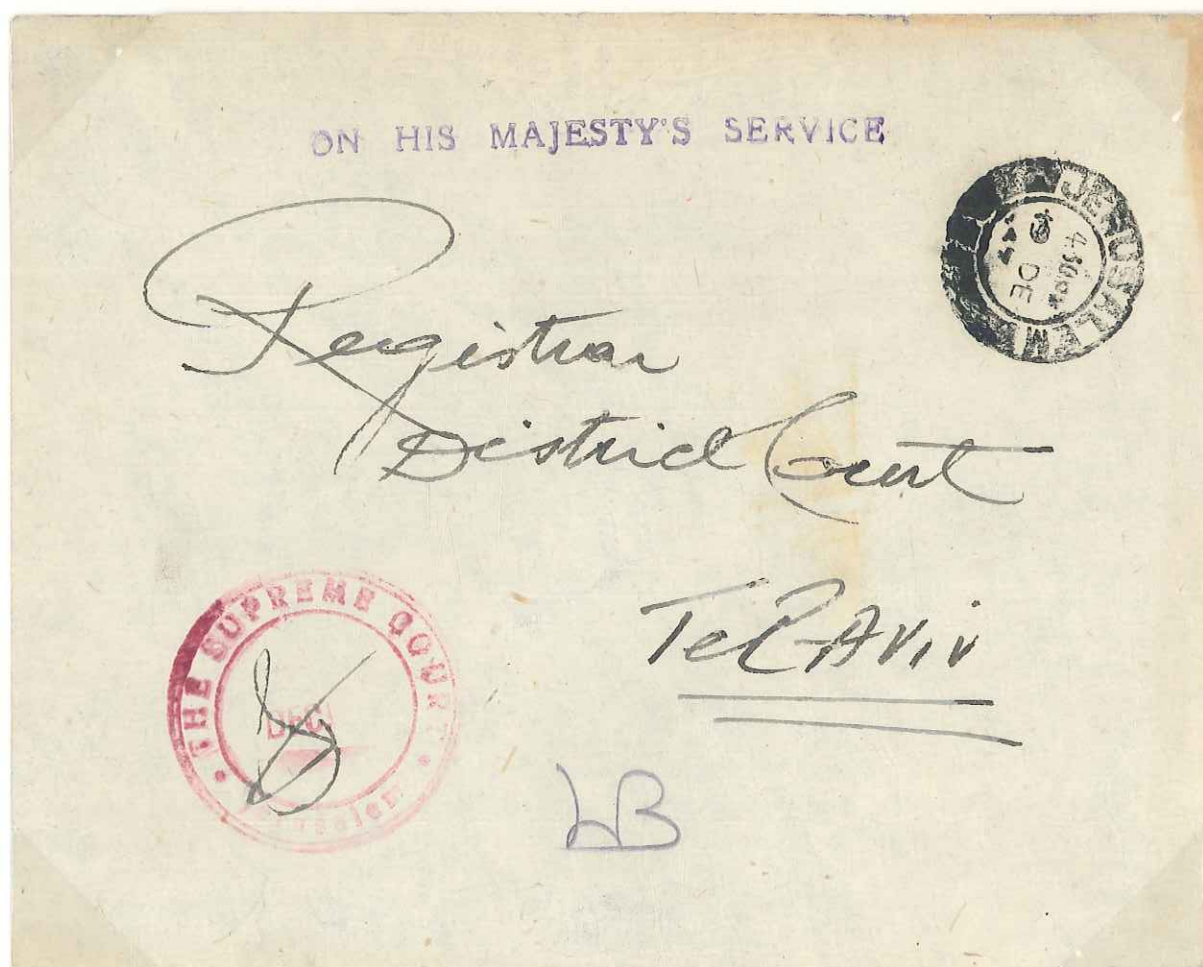 ON HIS MAJESTY'S SERVICE
JERUSALEM
4.30 PM
DE
Registrar
District Court
Tel-Aviv
THE SUPREME COURT
DEC
LB